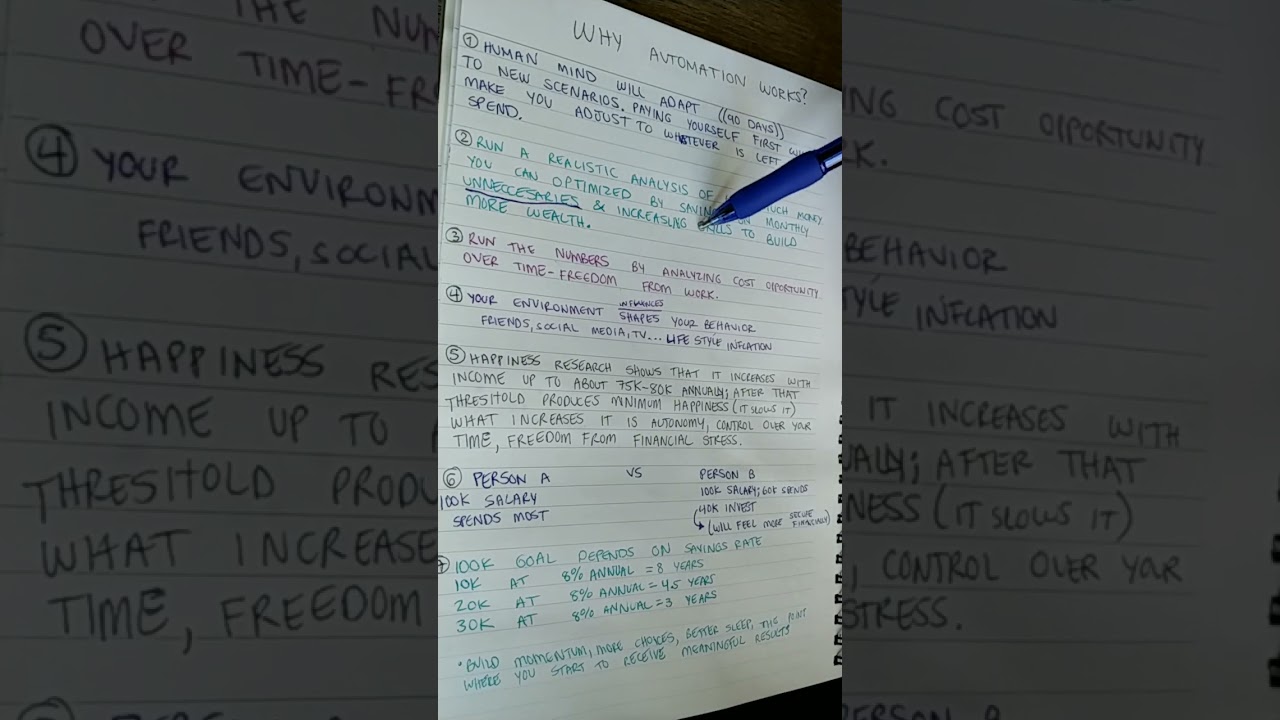 WHY AUTOMATION WORKS?
① HUMAN MIND WILL ADAPT ((90 DAYS))
TO NEW SCENARIOS. PAYING YOURSELF FIRST
MAKE YOU ADJUST TO WHATEVER IS LEFT
SPEND.
② RUN A REALISTIC ANALYSIS OF MUCH MONEY
YOU CAN OPTIMIZED BY SAVING ON MONTHLY
UNNECCESARIES & INCREASING SKILLS TO BUILD
MORE WEALTH.
③ RUN THE NUMBERS BY ANALYZING COST OPPORTUNITY
OVER TIME-FREEDOM FROM WORK.
④ YOUR ENVIRONMENT INFLUENCES SHAPES YOUR BEHAVIOR
FRIENDS, SOCIAL MEDIA, TV... LIFE STYLE INFLATION
⑤ HAPPINESS RESEARCH SHOWS THAT IT INCREASES WITH
INCOME UP TO ABOUT 75K-80K ANNUALLY; AFTER THAT
THRESHOLD PRODUCES MINIMUM HAPPINESS (IT SLOWS IT)
WHAT INCREASES IT IS AUTONOMY, CONTROL OVER YOUR
TIME, FREEDOM FROM FINANCIAL STRESS.
⑥ PERSON A VS PERSON B
100K SALARY 100K SALARY; 60K SPENDS
SPENDS MOST 40K INVEST
(WILL FEEL MORE SECURE FINANCIALLY)
100K GOAL DEPENDS ON SAVINGS RATE
10K AT 8% ANNUAL = 8 YEARS
20K AT 8% ANNUAL = 4.5 YEARS
30K AT 8% ANNUAL = 3 YEARS
• BUILD MOMENTUM, MORE CHOICES, BETTER SLEEP, THE POINT
WHERE YOU START TO RECEIVE MEANINGFUL RESULTS